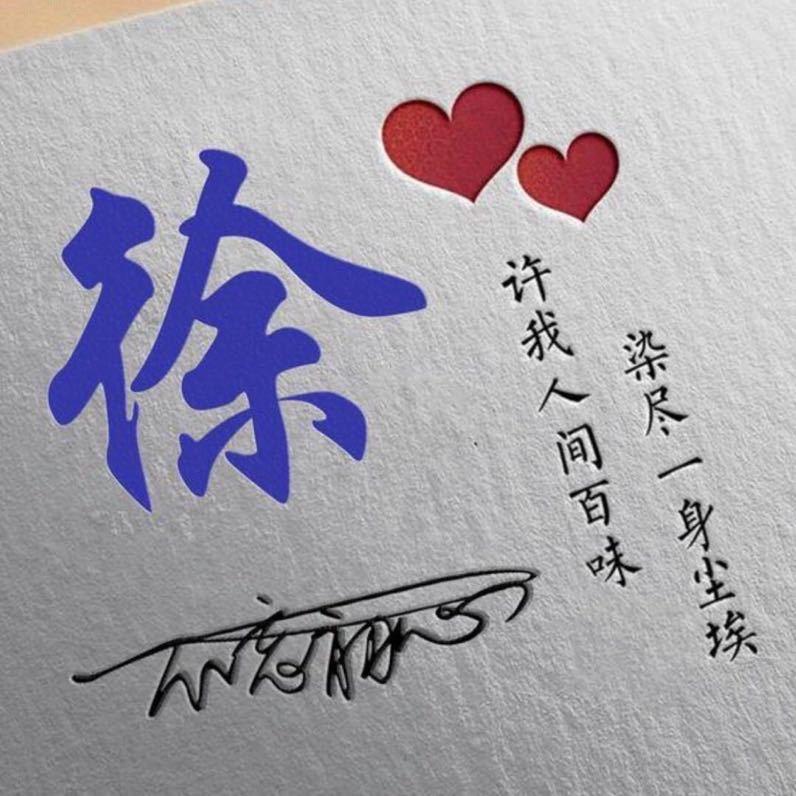 徐
许我人间百味
染尽一身尘埃